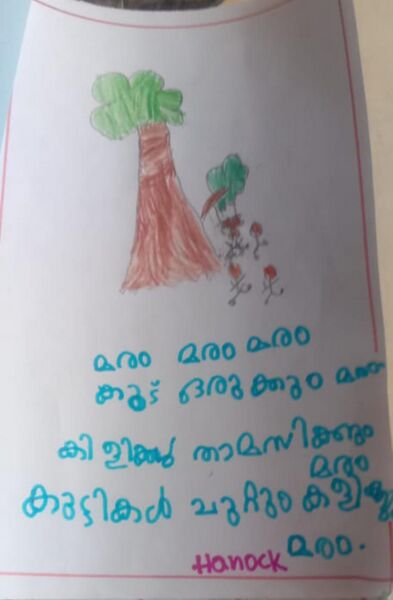 മരം മരം മരം
കൂട് ഒരുക്കും മരം
കിളികൾ താമസിക്കും
മരം
കുട്ടികൾ ചുറ്റും കളിക്കും
മരം.
Hanock